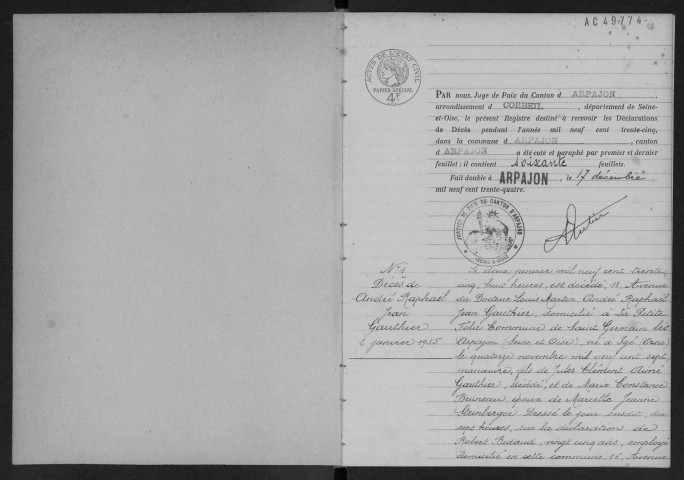 AC 49774
ACTES DE L'ÉTAT CIVIL
PAPIER SPÉCIAL
4F
PAR nous, Juge de Paix du Canton d ARPAJON,
arrondissement d CORBEIL, département de Seine-
et-Oise, le présent Registre destiné à recevoir les Déclarations
de Décès pendant l'année mil neuf cent trente-cinq,
dans la commune d ARPAJON, canton
d ARPAJON a été coté et paraphé par premier et dernier
feuillet : il contient soixante feuillets.
Fait double à ARPAJON, le 17 décembre
mil neuf cent trente-quatre.
JUSTICE DE PAIX DU CANTON D'ARPAJON
N° 1
Décès de
André Raphaël
Jean
Gauthier
2 janvier 1935
Le deux janvier mil neuf cent trente
cinq, huit heures, est décédé, 18, Avenue
du Docteur Louis Martin, André Raphaël
Jean Gauthier, domicilié à La Petite
Folie Commune de Saint Germain lès
Arpajon (Seine et Oise), né à Igé (Orne)
le quatorze novembre mil neuf cent sept,
manœuvre, fils de Jules Clément Aimé
Gauthier, décédé, et de Marie Constance
Bruneau, époux de Marcelle Jeanne
Steinberger. Dressé le jour susdit, dix
sept heures, sur la déclaration de
Robert vingt cinq ans, employé
domicilié en cette commune, 16, Avenue